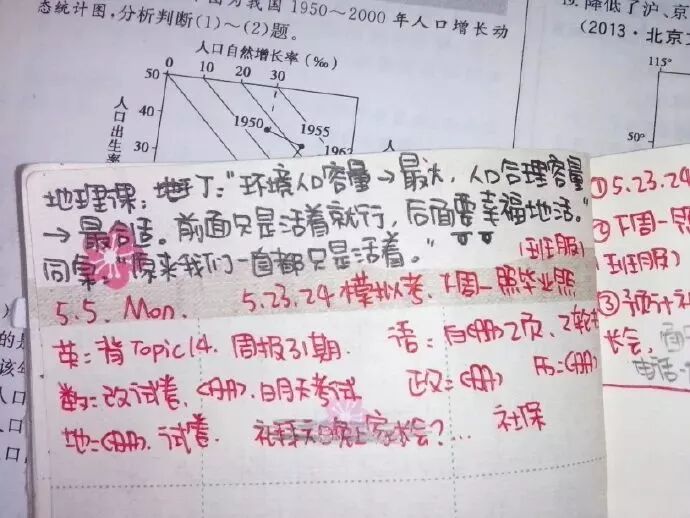 态统计图,分析判断(1)~(2)题。
图为我国1950~2000年人口增长动
人口自然增长率(‰)
0 10 20 30
50
40
30
人口出生率
1950
1955
1963
19.降低了沪、京
(2013·北京
115°
50°
地理课:地王丁:“环境人口容量→最大,人口合理容量
→最合适。前面只是活着就行,后面要幸福地活。”
同桌:“原来我们一直都只是活着。”
(班服)
5.5. Mon. 5.23.24模拟考.下周一照毕业照
英:背Topic14. 周报31期. 语:白《册》2页、
数:改试卷,《册》.明天考试 政:《册》 历:《册》
地:《册》.试卷. 礼拜天晚上家长会?... 社保
①5.23.24
②下周一照
(班服)
③预计礼
长会,
电话